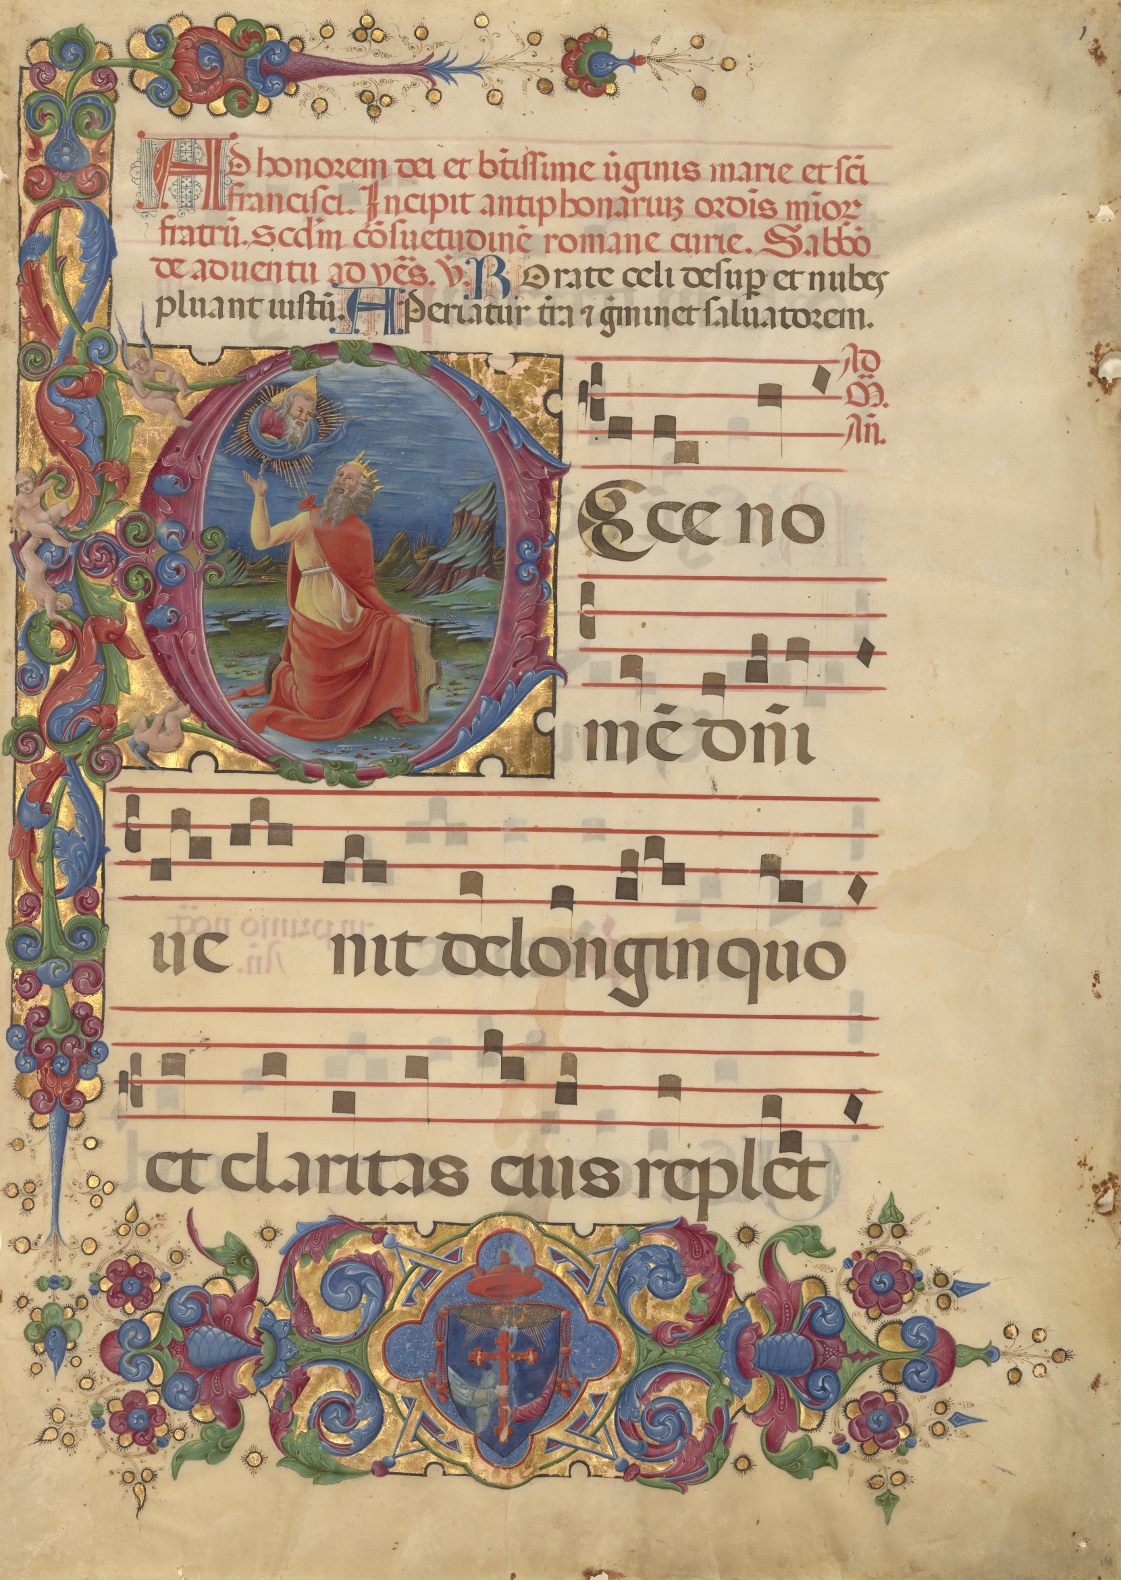 Ad honorem dei et bt̄issime ūginis marie et sc̄i
francisci. Incipit antiphonariuȝ ordīs mīoꝝ
fratrū. Scd̄m cōsuetudinē romane curie. Sabb̄o
de aduentu ad ve᷒s. v̄. Rorate celi desup et nubes
pluant iustū. Aperiatur t̄ra ⁊ gīminet saluatorem.
Ad
M̄.
An̄.
Ecce no
mē dn̄i
ue nit de longinquo
et claritas eius replet